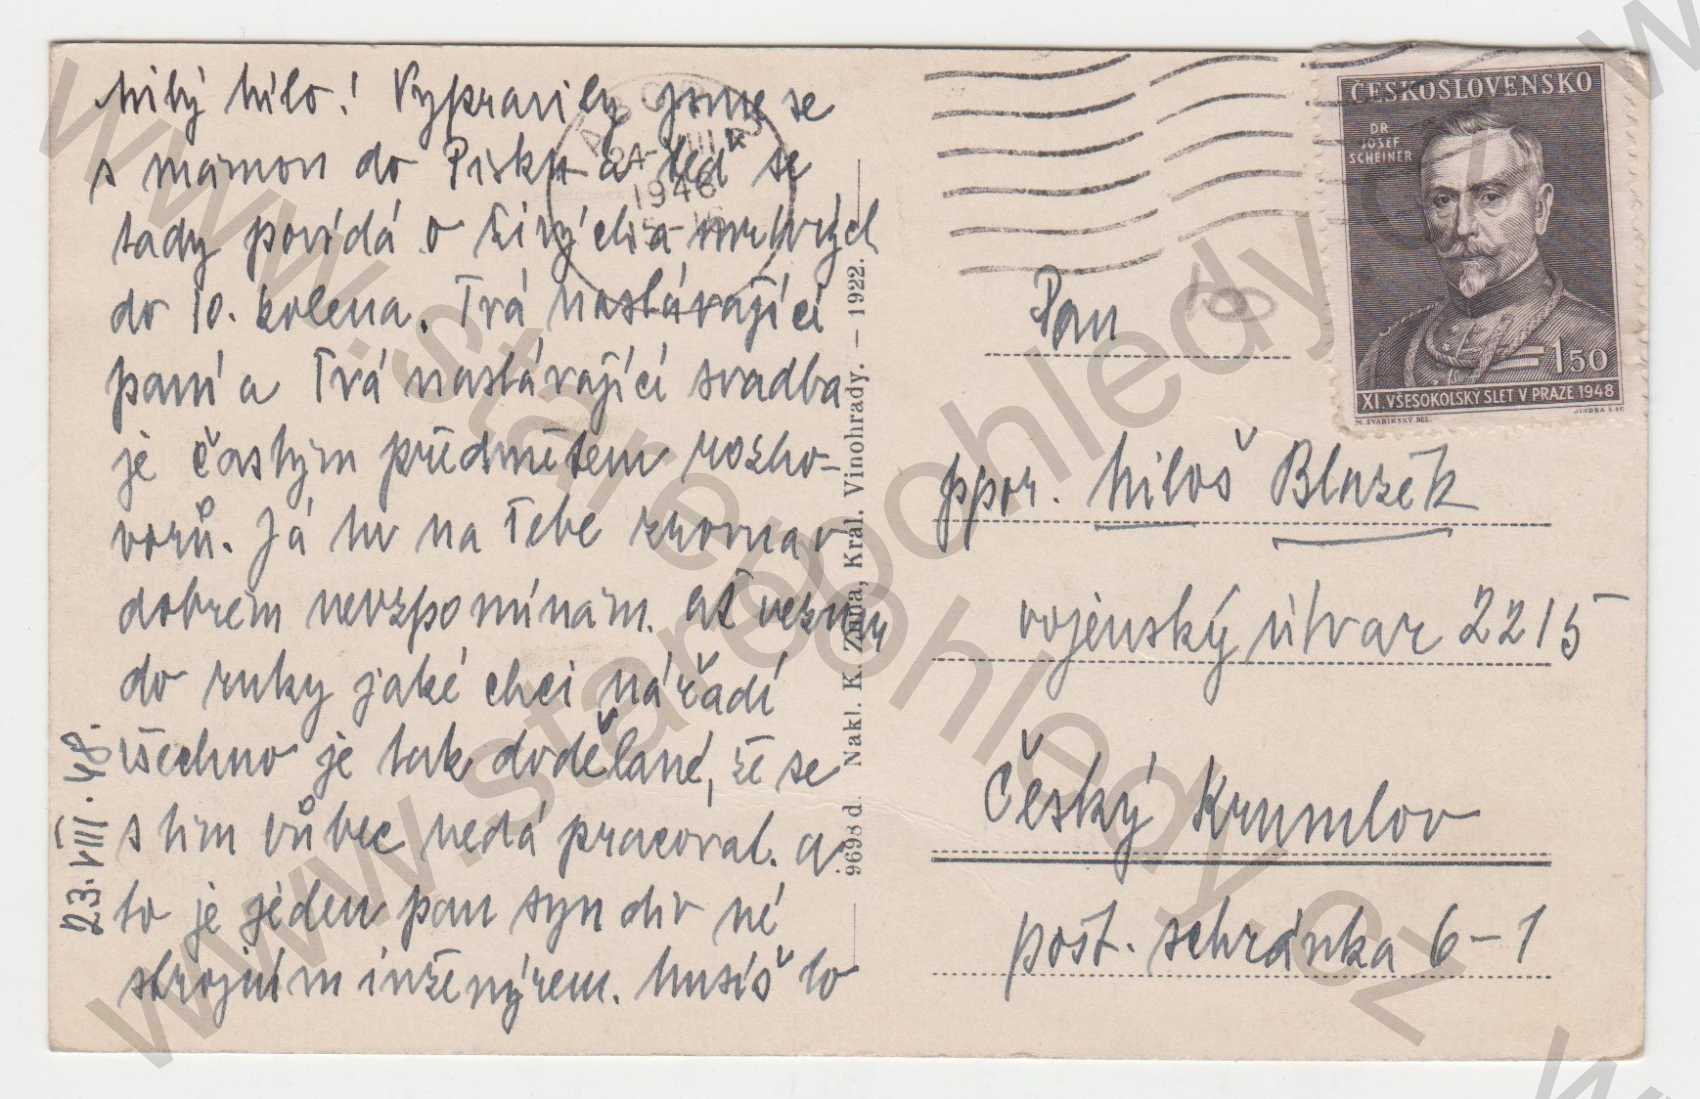 Milý Mílo! Vypravily jsme se
s mámou do Písku a teď se
tady povídá o živých a mrtvých
do 10. kolena. Tvá nastávající
paní a Tvá nastávající svadba
je častým předmětem rozho-
vorů. Já tu na Tebe zrovna v
dobrém nevzpomínám. Ať vezmu
do ruky jaké chci nářadí
všechno je tak dodělané, že se
s tím vůbec nedá pracovat. a
to je jeden pan syn div né
strojním inženýrem. Musíš to
23.VIII.48.
9698 d. Nakl. K. Zuna, Král. Vinohrady. – 1922.
1948
ČESKOSLOVENSKO
DR
JOSEF
SCHEINER
1 50
XI. VŠESOKOLSKÝ SLET V PRAZE 1948
M. ŠVABINSKÝ DEL.
JINDRA SC.
Pan
ppor. Miloš Blažek
vojenský útvar 2215
Český Krumlov
pošt. schránka 6-1
www.starepohledy.cz
www.starepohledy.cz